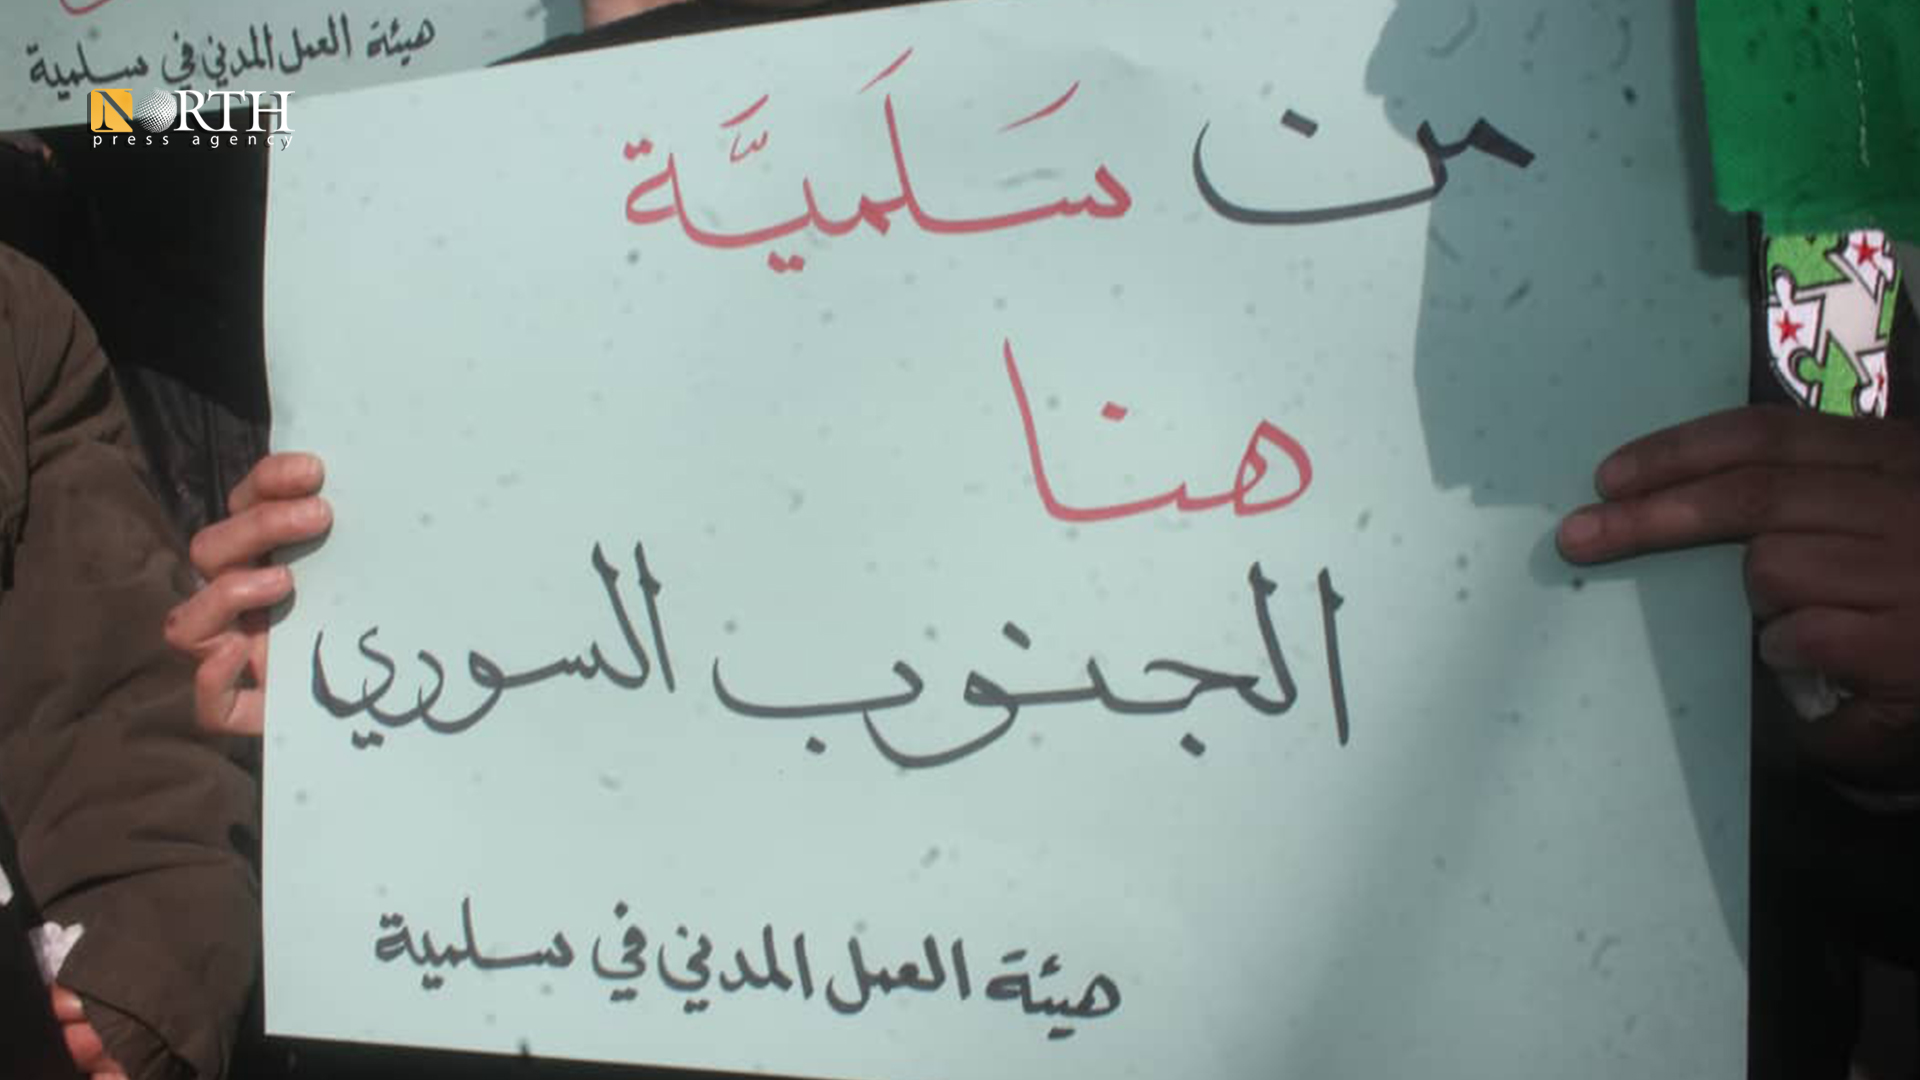 هيئة العمل المدني في سلمية
NORTH
press agency
من سَلَميَّة
هنا
الجنوب السوري
هيئة العمل المدني في سلمية